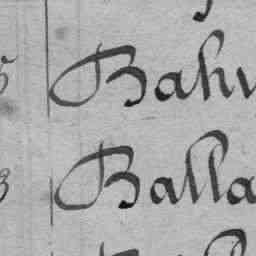 5 Bahr
3 Balla